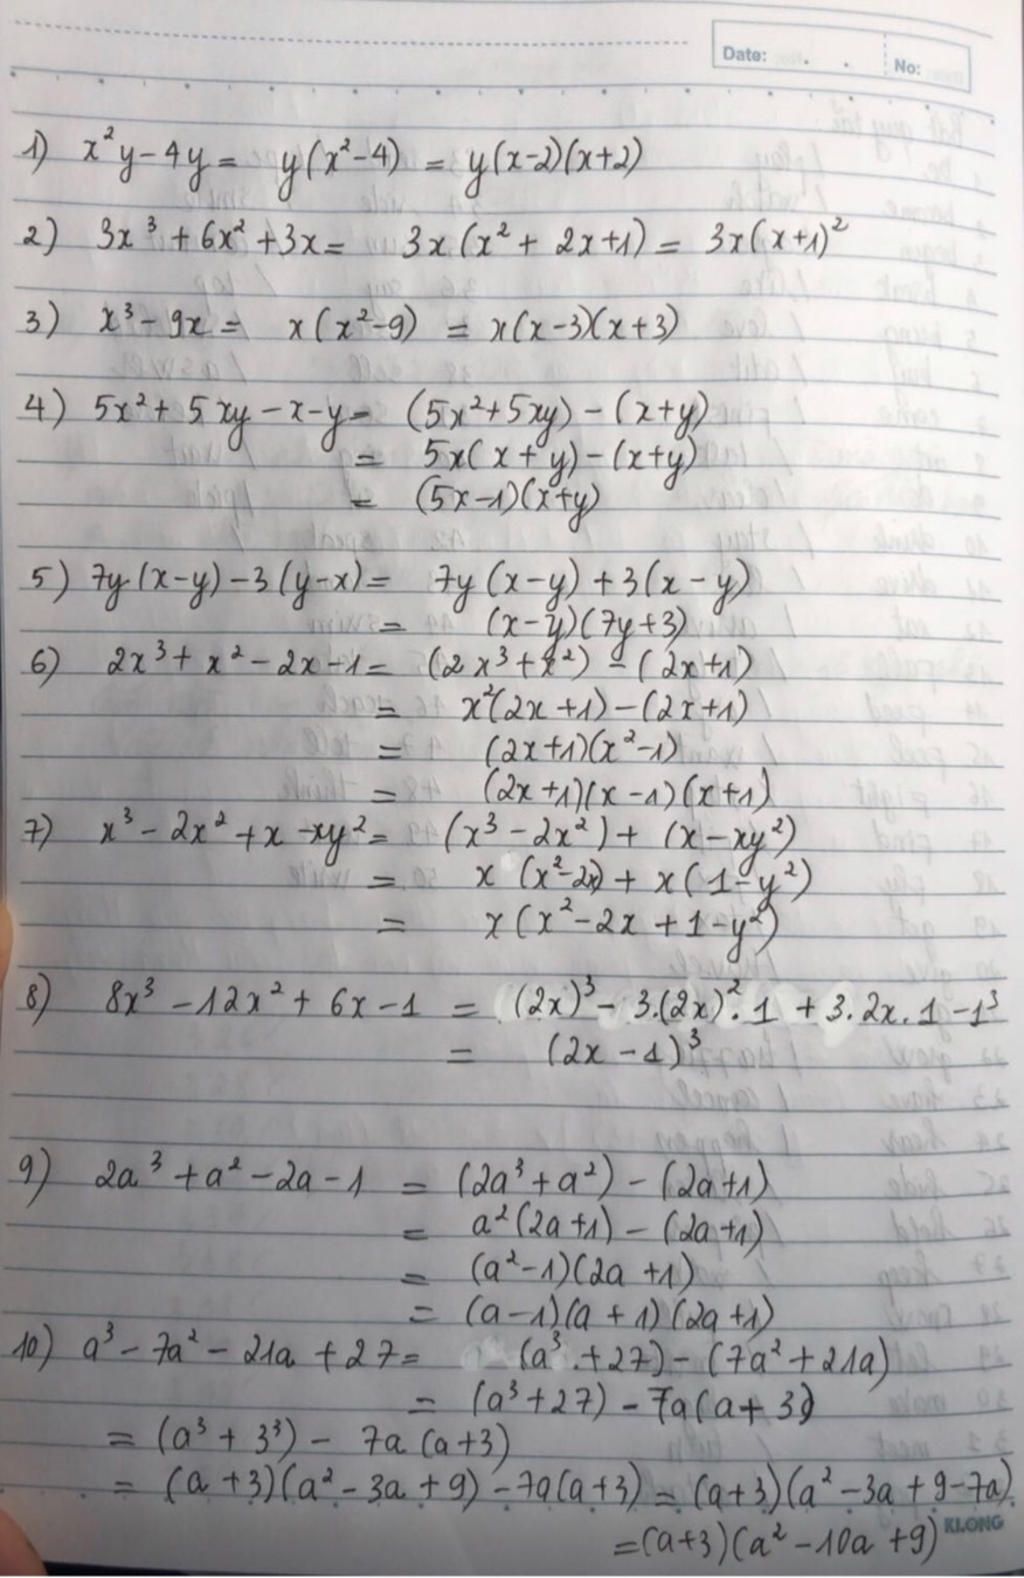 Date: . .
No:
1) x²y - 4y = y(x² - 4) = y(x-2)(x+2)
2) 3x³ + 6x² + 3x = 3x(x² + 2x+1) = 3x(x+1)²
3) x³ - 9x = x(x²-9) = x(x-3)(x+3)
4) 5x² + 5xy - x - y = (5x²+5xy) - (x+y)
= 5x(x+y) - (x+y)
= (5x-1)(x+y)
5) 7y(x-y) - 3(y-x) = 7y(x-y) + 3(x-y)
= (x-y)(7y+3)
6) 2x³ + x² - 2x - 1 = (2x³+x²) - (2x+1)
= x²(2x+1) - (2x+1)
= (2x+1)(x²-1)
= (2x+1)(x-1)(x+1)
7) x³ - 2x² + x - xy² = (x³ - 2x²) + (x - xy²)
= x (x²-2x) + x(1-y²)
= x(x² - 2x + 1 - y²)
8) 8x³ - 12x² + 6x - 1 = (2x)³ - 3.(2x)².1 + 3.2x.1 - 1³
= (2x - 1)³
9) 2a³ + a² - 2a - 1 = (2a³ + a²) - (2a+1)
= a²(2a+1) - (2a+1)
= (a²-1)(2a+1)
= (a-1)(a+1)(2a+1)
10) a³ - 7a² - 21a + 27 = (a³ + 27) - (7a² + 21a)
= (a³+27) - 7a(a+3)
= (a³ + 3³) - 7a(a+3)
= (a+3)(a² - 3a + 9) - 7a(a+3) = (a+3)(a² - 3a + 9 - 7a)
= (a+3)(a² - 10a + 9)
KLONG